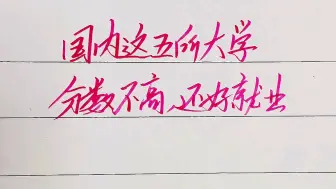 国内这五所大学
分数不高,还好就业